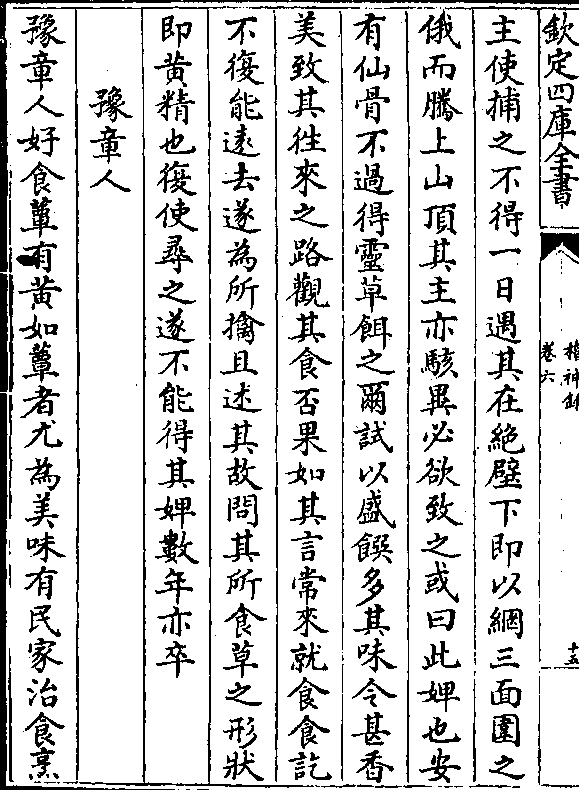 欽定四庫全書
稽神錄
卷六
十五
主使捕之不得一日遇其在絕壁下即以網三面圍之
俄而騰上山頂其主亦駭異必欲致之或曰此婢也安
有仙骨不過得靈草餌之爾試以盛饌多其味令甚香
美致其徃來之路觀其食否果如其言常來就食食訖
不復能遠去遂為所擒且述其故問其所食草之形狀
即黄精也復使尋之遂不能得其婢數年亦卒
豫章人
豫章人好食蕈有黄如蕈者尤為美味有民家治食烹